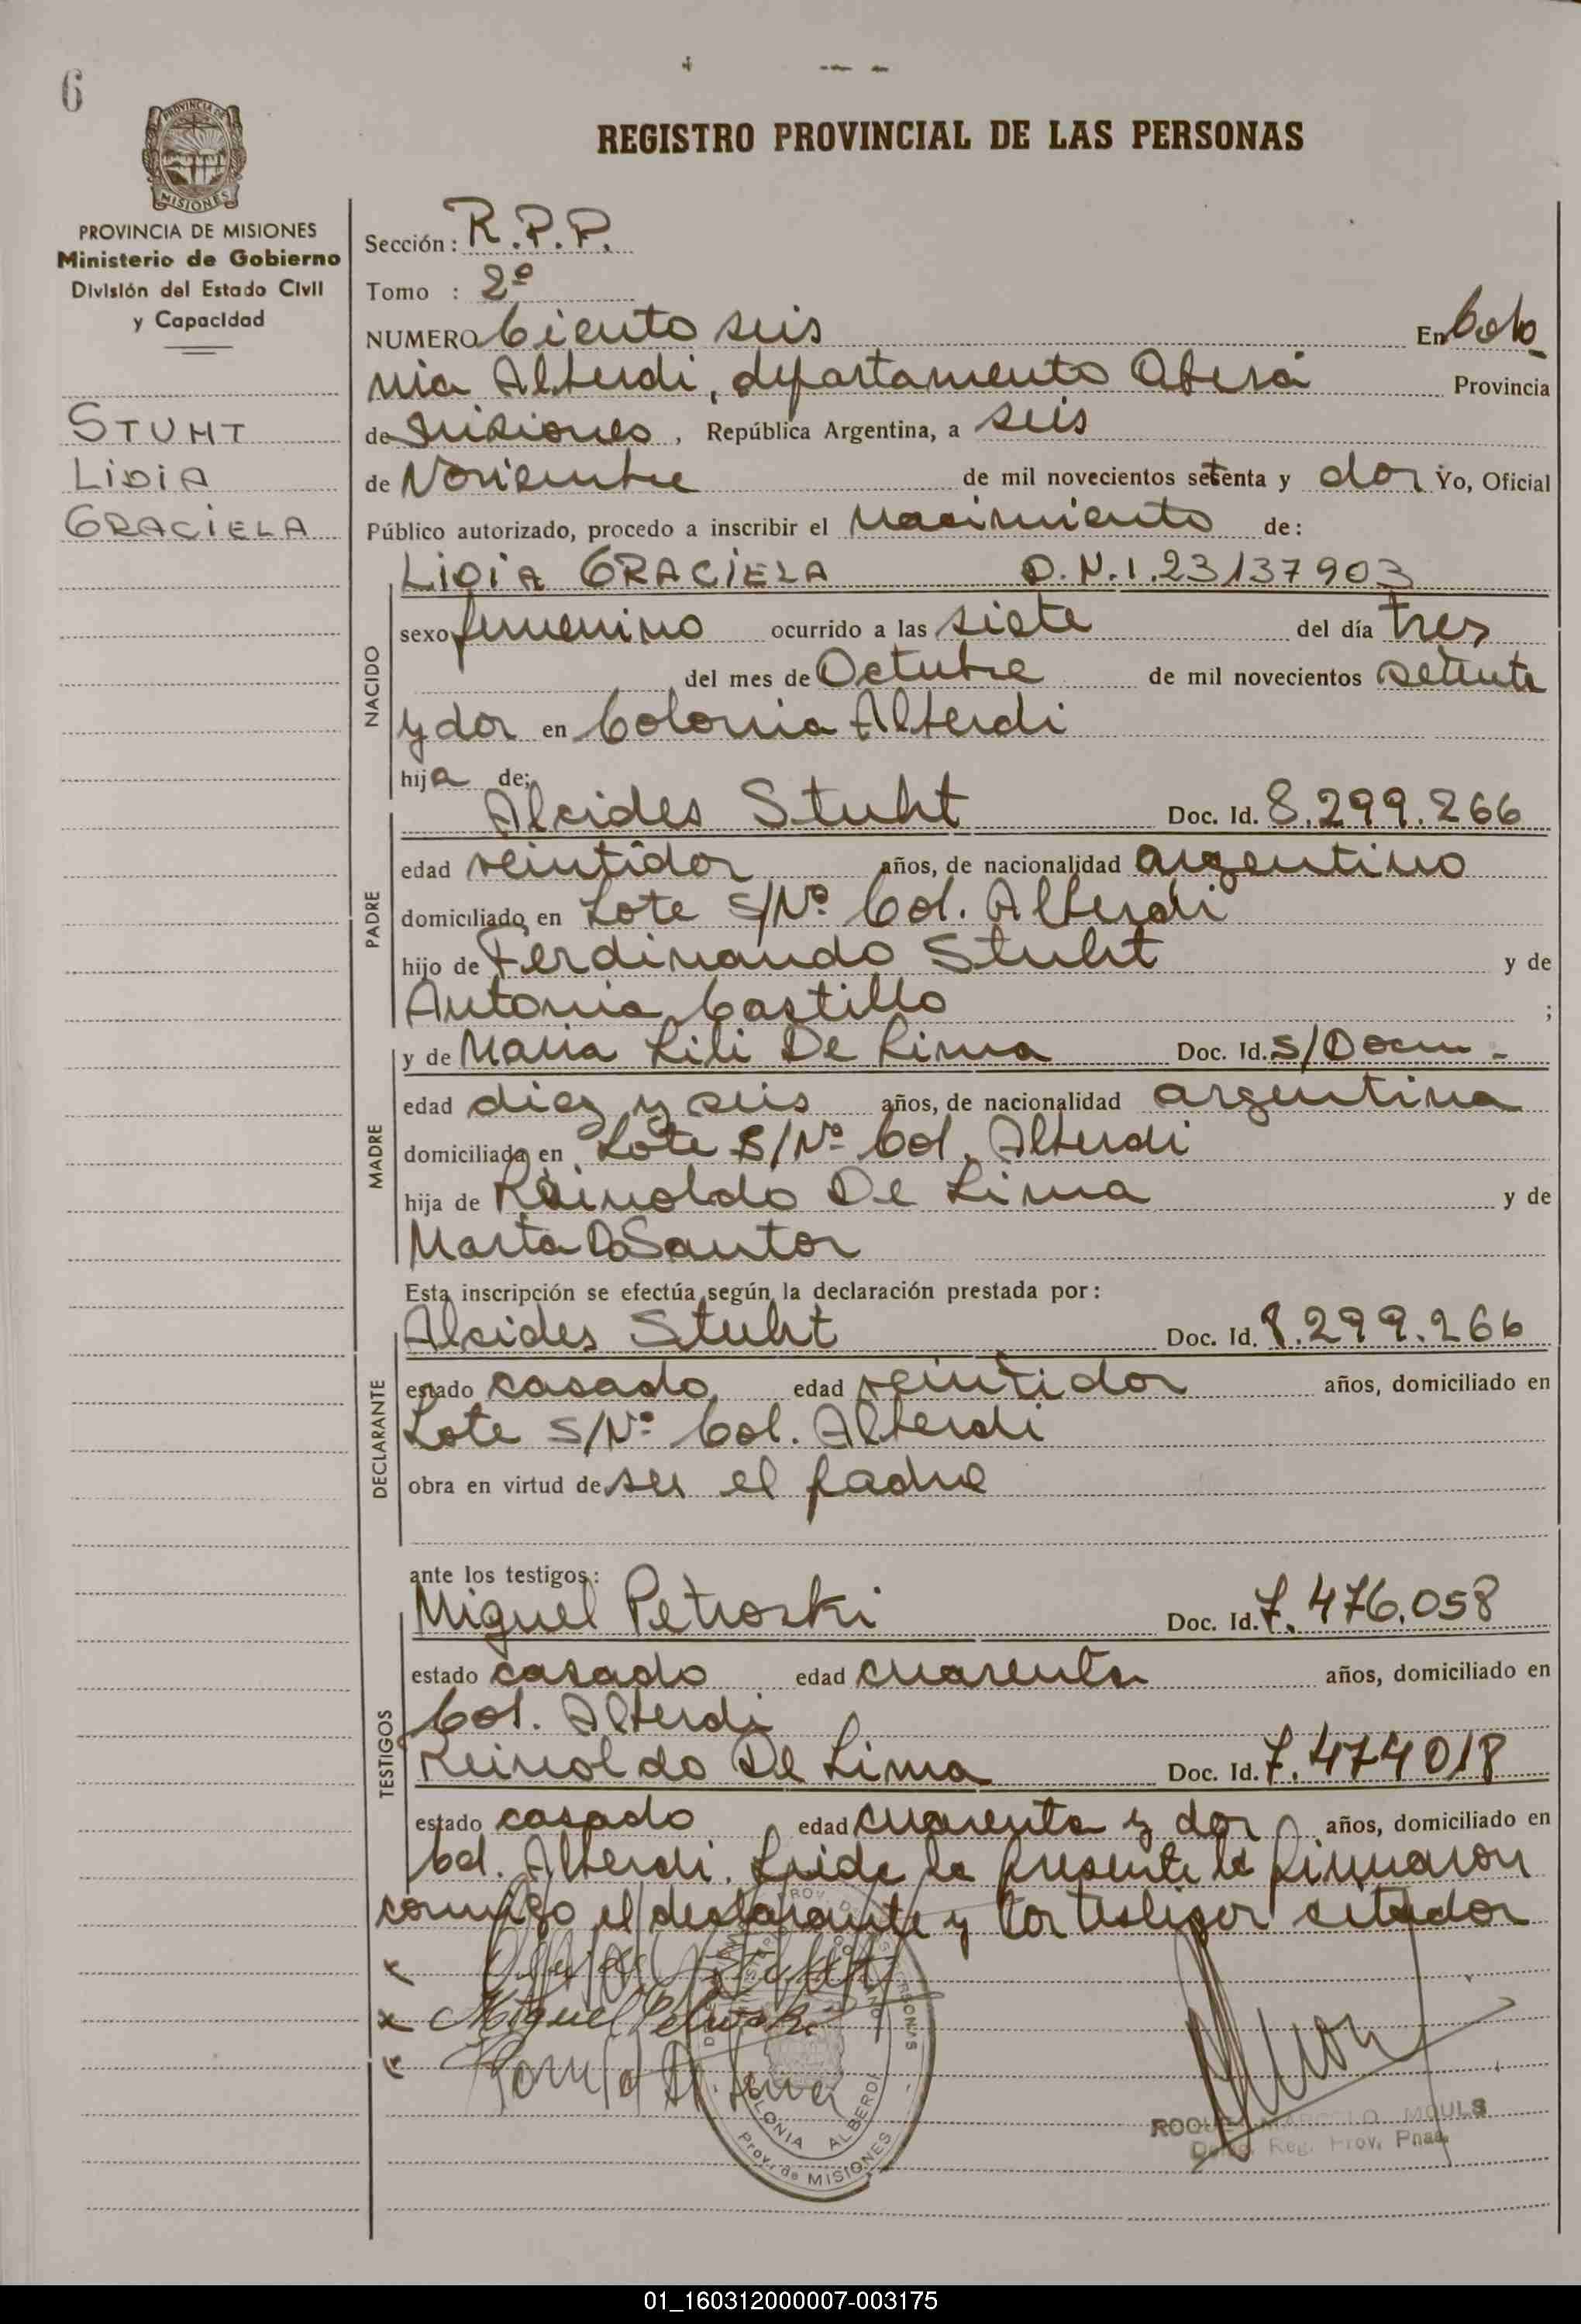 6
PROVINCIA DE
MISIONES
PROVINCIA DE MISIONES
Ministerio de Gobierno
División del Estado Civil
y Capacidad
STUHT
LIDIA
GRACIELA
REGISTRO PROVINCIAL DE LAS PERSONAS
Sección: R.P.P.
Tomo : 2º
NUMERO Ciento seis En Colo
nia Alberdi, departamento Oberá Provincia
de Misiones, República Argentina, a seis
de Noviembre de mil novecientos setenta y dos Yo, Oficial
Público autorizado, procedo a inscribir el Nacimiento de:
LIDIA GRACIELA D.N.I. 23137903
NACIDO
sexo femenino ocurrido a las siete del día tres
del mes de Octubre de mil novecientos setenta
y dos en Colonia Alberdi
hija de:
PADRE
Alcides Stuht Doc. Id. 8.299.266
edad veintidos años, de nacionalidad argentino
domiciliado en Lote S/Nº Col. Alberdi
hijo de Ferdinando Stuht y de
Antonia Castillo ;
MADRE
y de Maria Lili De Lima Doc. Id. S/Docum.-
edad diez y seis años, de nacionalidad argentina
domiciliada en Lote S/Nº Col. Alberdi
hija de Reinoldo De Lima y de
Marta Do Santos
Esta inscripción se efectúa según la declaración prestada por:
DECLARANTE
Alcides Stuht Doc. Id. 8.299.266
estado casado edad veintidos años, domiciliado en
Lote S/Nº Col. Alberdi
obra en virtud de ser el padre
ante los testigos:
TESTIGOS
Miguel Petroski Doc. Id. 7.476.058
estado casado edad cuarenta años, domiciliado en
Col. Alberdi
Reinoldo De Lima Doc. Id. 7.474018
estado casado edad cuarenta y dos años, domiciliado en
Col. Alberdi. Leida la presente la firmaron
conmigo el declarante y los testigos citados
x
x Miguel Petroski
x
COLONIA ALBERDI
Prov. de MISIONES
ROQUE MARCELO MOULS
Deleg. Reg. Prov. Pnas.
01_160312000007-003175